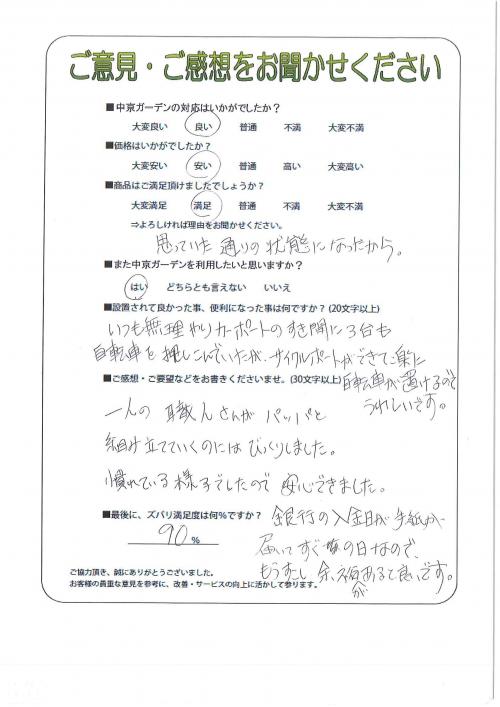 ご意見・ご感想をお聞かせください
■中京ガーデンの対応はいかがでしたか?
大変良い 良い 普通 不満 大変不満
■価格はいかがでしたか?
大変安い 安い 普通 高い 大変高い
■商品はご満足頂けましたでしょうか?
大変満足 満足 普通 不満 大変不満
⇒よろしければ理由をお聞かせください。
思っていた通りの状態になったから。
■また中京ガーデンを利用したいと思いますか?
はい どちらとも言えない いいえ
■設置されて良かった事、便利になった事は何ですか?(20文字以上)
いつも無理やりカーポートのすき間に3台も
自転車を押しこんでいたが、サイクルポートができて楽に
自転車が置けるので
うれしいです。
■ご感想・ご要望などをお書きくださいませ。(30文字以上)
一人の職人さんがパッパと
組み立てていくのにはびっくりしました。
慣れている様子でしたので安心できました。
■最後に、ズバリ満足度は何%ですか?
90%
銀行の入金日が手紙が
届いてすぐの日なので、
もう少し余裕があると良いです。
ご協力頂き、誠にありがとうございました。
お客様の貴重な意見を参考に、改善・サービスの向上に活かして参ります。